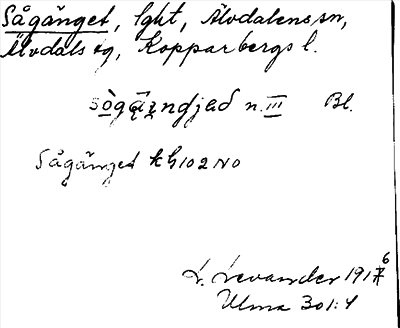 Sågänget, lght, Älvdalens sn,
Älvdals tg, Kopparbergs l.
sògä̀ndjeð n. III Bl.
Sågänget kh 102 NO
L. Levander 1916
Ulma 301:4